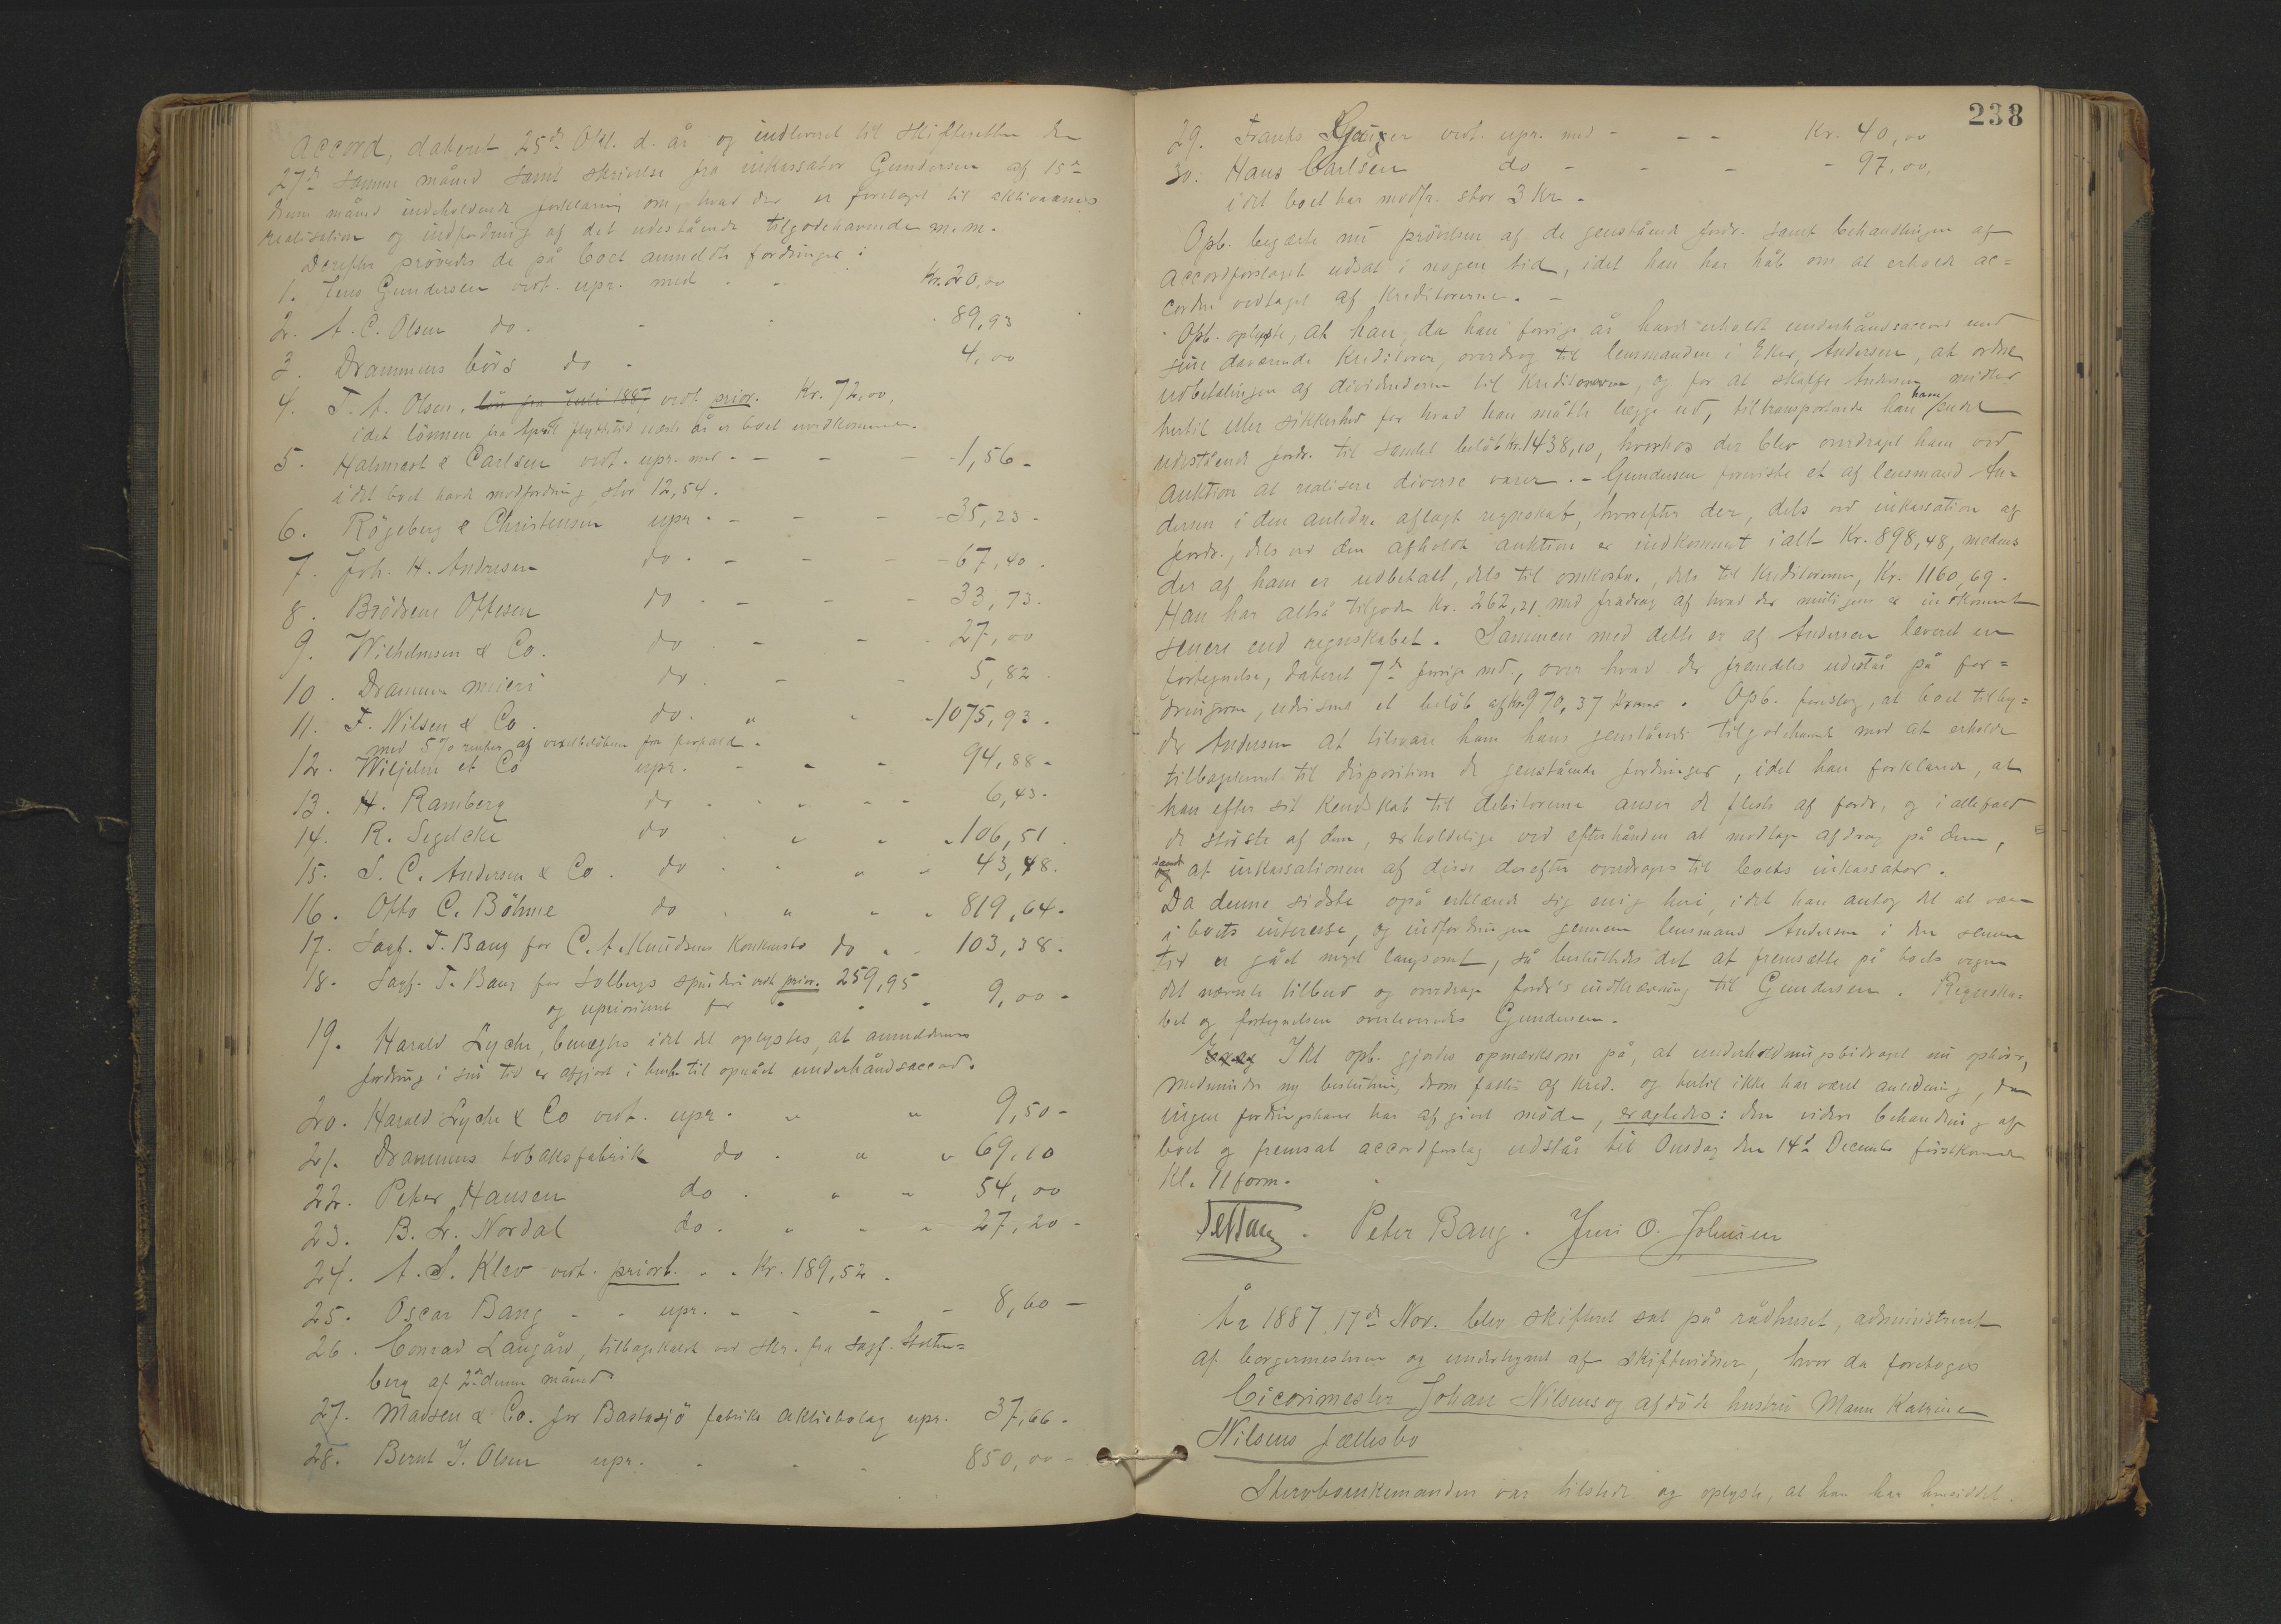 accord, dateret 25de Okt. d. år og indleveret til skifteretten den
27de samme måned samt skrivelse fra inkassator Gundersen af 15de
denne måned indeholdende forklaring om, hvad der er foretaget til aktivaernes
realisation og indfordring af det udestående tilgodehavende m.m.
Derefter prøvedes de på boet anmeldte fordringer:
1. Jens Gundersen vedt. upr. med - - Kr. 20,00
2. A. C. Olsen do. - - 89,93
3. Drammens børs do - 4,00
4. T. A. Olsen. løn fra Juli 1887 vedt. prior. Kr. 72,00,
idet lønnen fra April flyttetid næste år er boet uvedkommende.
5. Halmrast & Carlsen vedt. upr. med - - - 1,56 -
idet boet havde modfordring stor 12,54.
6. Røgeberg & Christensen upr. - - - 35,23 -
7. Joh. H. Andresen do. - - 67,40.
8. Brødrene Ottesen do. - - - 33,73.
9. Wilhelmsen & Co. do - - - 27,00
10. Drammens meieri do. - - 5,82.
11. F. Nilsen & Co. do. " " - 1075,93.
med 5% renter af vexelbeløbene fra forfald.
12. Wiljelm et Co upr. - - - 94,88 -
13. H. Ramberg do - - " - - 6,43 -
14. R. Segelcke do " " " 106,51.
15. S. C. Andersen & Co. do - - " - 43,48.
16. Otto C. Böhme do . " " " 819,64 -
17. Sagf. T. Bang for C. A. Knudsens Konkursbo do " - 103,38.
18. Sagf. T. Bang for Solbergs spinderi vedt prior. 259,95
og uprioriteret for " " " 9,00 -
19. Harald Lyche, benægtes idet det oplystes, at anmelderens
fordring i sin tid er afgjort i henh. til opnået underhåndsaccord.
20. Harald Lyche & Co vedt. upr. " " 9,50 -
21. Drammens tobaksfabrik do. " " 69,10
22. Peter Hansen do. " " 54,00
23. B. Nordal do. " " " 27,20 -
24. A. S. Klev vedt. priorit. . . Kr. 189,52.
25. Oscar Bang - - upr. - - - - 8,60 -
26. Conrad Langård, tilbagekaldt ved skr. fra sagf. Stolten=
berg af 2den denne måned
27. Madsen & Co. for Bastasjö fabriks aktiebolag upr. 37,66 -
28. Bernt J. Olsen upr. - - - 850,00 -
238
29. Frants vedt. upr. med - - - Kr. 40,00
30. Hans Carlsen do - - - - 97,00,
idet boet har modfr. stor 3 Kr. -
Opb. begærte nu prøvelsen af de genstående fordr. samt behandlingen af
accordforslaget udsat i nogen tid, idet han har håb om at erholde ac=
corden vedtaget af Kreditorerne. -
Opb. oplyste, at han, da han forrige år havde erholdt underhåndsaccord med
sine daværende Kreditorer, overdrog til lensmanden i Eker, Andersen, at ordne
udbetalingen af dividenderne til Kreditorerne, og for at skaffe Andersen midler
hertil eller sikkerhed for hvad han måtte lægge ud, tiltransporterede han ham endel
udestående fordr. til samlet beløb Kr. 1438,10, hvorhos der blev overdraget ham ved
auktion at realisere diverse varer. - Gundersen foreviste et af lensmand An=
dersen i den anledn. aflagt regnskab, hvorefter der, dels ved inkassation af
fordr., dels ved den afholdte auktion er indkommet ialt Kr. 898,48, medens
der af ham er udbetalt, dels til omkostn., dels til Kreditorerne, Kr. 1160,69.
Han har altså tilgode Kr. 262,21 med fradrag af hvad der muligens er indkommet
senere end regnskabet. Sammen med dette er af Andersen leveret en
fortegnelse, dateret 7de forrige md., over hvad der fremdeles udestår på for=
dringerne, udvisende et beløb af Kr. 970,37 Kroner. Opb. foreslog, at boet tilby=
der Andersen at tilsvare ham hans genstående tilgodehavende mod at erholde
tilbageleveret til disposition de genstående fordringer, idet han forklarede, at
han efter sit Kendskab til debitorerne anser de fleste af fordr., og i allefald
de største af dem, erholdelige ved efterhånden at modtage afdrag på dem,
samt at inkassationen af disse derefter overdrages til boets inkassator.
Da denne sidste også erklærede sig enig heri, idet han antog det at være
i boets interesse, og indfordringen gennem lensmand Andersen i den senere
tid er gået meget langsomt, så besluttedes det at fremsætte på boets vegne
det nævnte tilbud og overdrage fordr's inddrivning til Gundersen. Regnska=
bet og fortegnelsen overleveredes Gundersen.
Idet opb. gjordes opmærksom på, at underholdningsbidraget nu ophører,
medmindre ny beslutning derom fattes af Kred. og hertil ikke har været anledning, da
ingen fordringshaver har afgivet møde, eragtedes: den videre behandling af
boet og fremsat accordforslag udstår til Onsdag den 14de December førstkommende
Kl. 11 form.
Peter Bang. Jens O. Johnsen
År 1887 17de Nov. blev skifteret sat på rådhuset, administreret
af borgermesteren og undertegnet af skiftevidner, hvor da foretoges
Cicorimester Johan Nilsens og afdøde hustru Maren Katrine
Nilsens fællesbo
Stervboenkemanden var tilstede og oplyste, at han har hensiddet